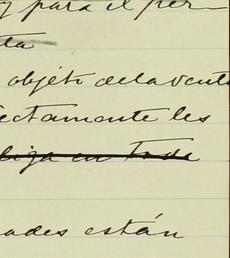 para el per-
ta
objeto de la venta
ectamente les
liga en todo
ades están